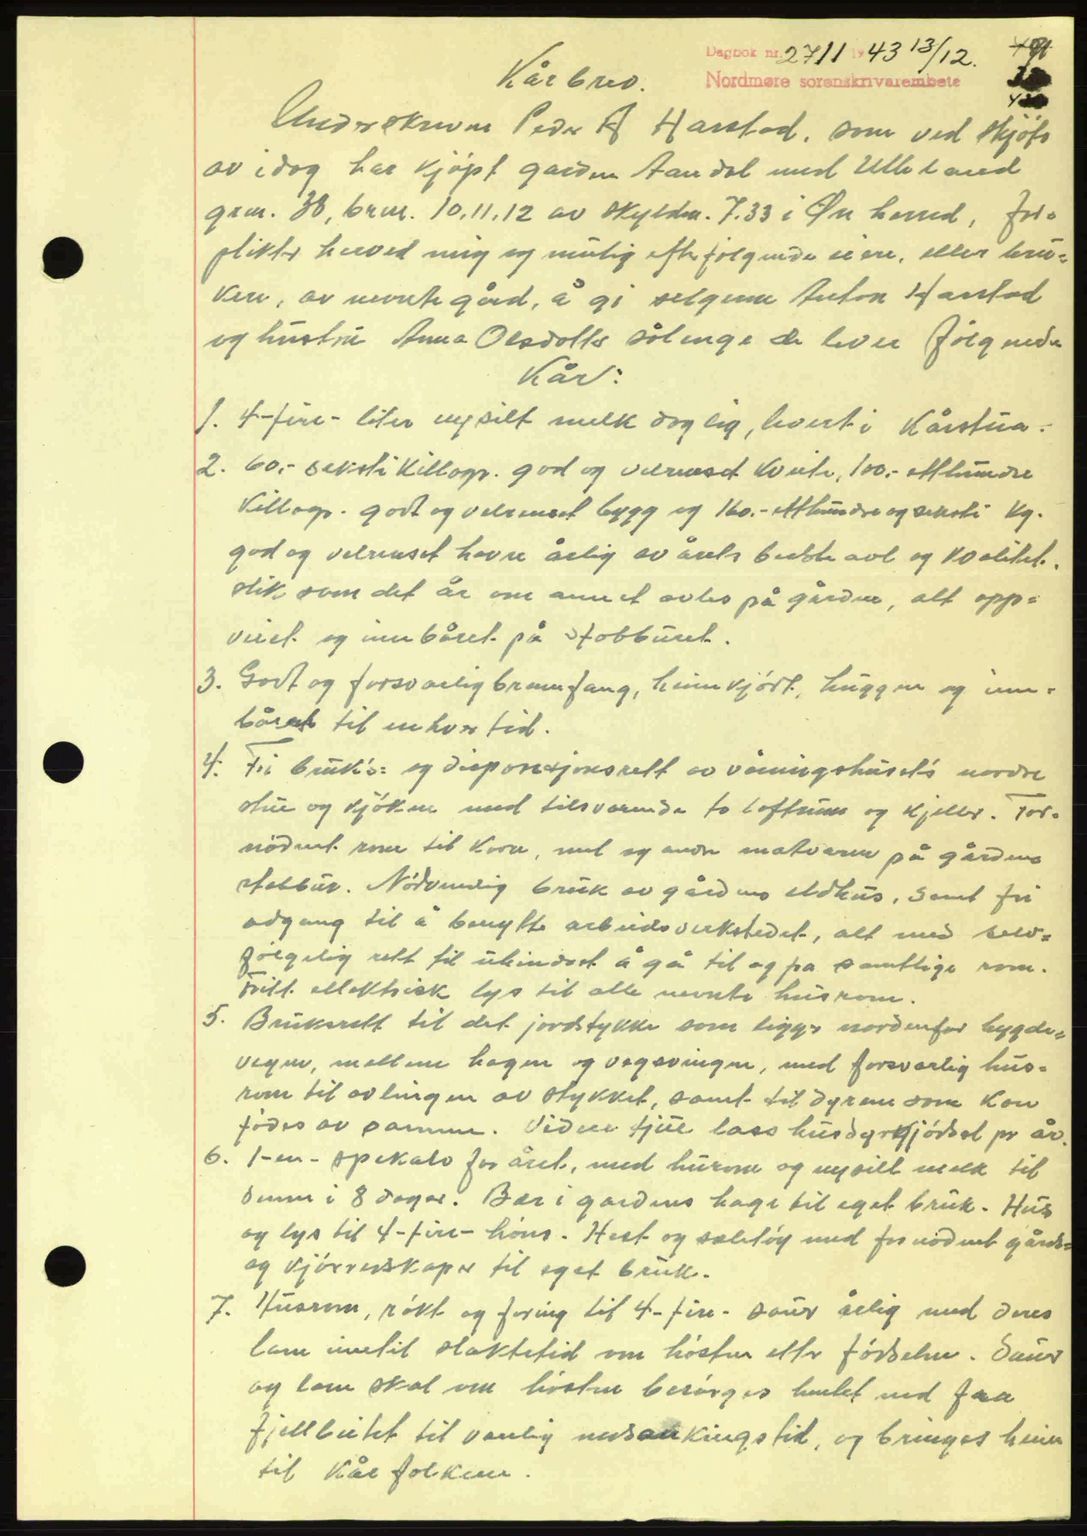 Dagbok nr. 2711 19 43 13/12.
Nordmøre sorenskriverembete
Kårbrev.
Underskrevne Peder A Harstad, som ved skjøte
av idag har kjøpt garden Aandal med Utteland
grnr. 38, brnr. 10.11.12 av skyldm. 7.33 i Øre herred, for=
plikter herved mig og mulig efterfølgende eiere, eller bru=
kere, av nevnte gård, å gi selgerne Anton Harstad
og hustru Anna Olsdotter sålenge de lever følgende
Kår:
1. 4-fire- liter nysilt melk daglig, levert i Kårstua.
2. 60,- seksti Killogr. god og velrenset Kveite, 100,- etthundre
Killogr. godt og velrenset bygg og 160.- etthundre og seksti Kg.
god og velrenset havre årlig av årets beste avl og kvalitet,
slik som det år om annet avles på gården, alt opp=
veiet og innbåret på stabburet.
3. Godt og forsvarlig brennfang, heimkjørt, huggen og inn=
båret til enhver tid.
4. Fri bruks= og disposisjonsrett av våningshuset's nordre
stue og kjøken med tilsvarende to loftrum og kjeller. For=
nødent rom til Korn, mel og andre matvarer på gårdens
stabbur. Nødvendig bruk av gårdens eldhus, samt fri
adgang til å benytte arbeidsverkstedet, alt med selv=
følgelig rett til uhindret å gå til og fra samtlige rom.
Fritt ellektrisk lys til alle nevnte husrom.
5. Bruksrett til det jordstykke som ligger nordenfor bygde=
vegen, mellem hagen og vegsvingen, med forsvarlig hus=
rom til avlingen av stykket, samt til dyrene som kan
fødes av samme. Videre tjue lass husdyrgjødsel pr år.
6. 1-en- spekalv for året, med husrom og nysilt melk til
denne i 8 dager. Bær i gardens hage til eget bruk. Hus
og lys til 4-fire- høns. Hest og seletøy med fornødent gårds=
og kjørredskaper til eget bruk.
7. Husrom, røkt og foring til 4-fire- sauer årlig med deres
lam inntil slaktetid om høsten etter fødselen. Sauer
og lam skal om høsten besørges hentet ned fra
fjellbeitet til vanlig nedsankingstid, og bringes heim
til Kårfolkene.